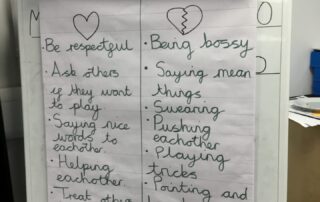 Be respectful
Ask others
if they want
to play
Saying nice
words to
eachother.
Helping
eachother.
Treat others
Being bossy
Saying mean
things.
Swearing
Pushing
eachother
Playing
tricks
Pointing and